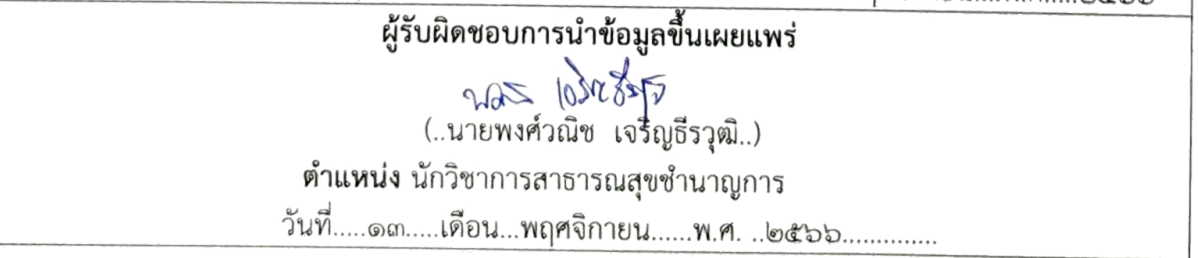 ผู้รับผิดชอบการนำข้อมูลขึ้นเผยแพร่
(..นายพงศ์วณิช เจริญธีรวุฒิ..)
ตำแหน่ง นักวิชาการสาธารณสุขชำนาญการ
วันที่.....๑๓.....เดือน...พฤศจิกายน......พ.ศ. ..๒๕๖๖..............